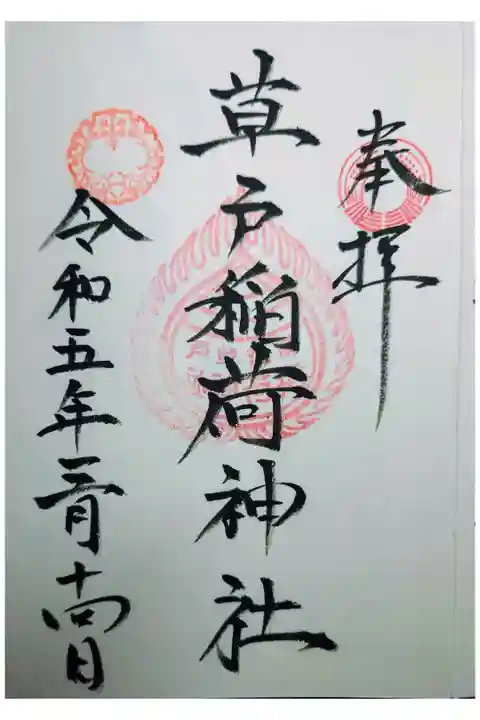 奉拝
草戸稲荷神社
令和五年三月十四日